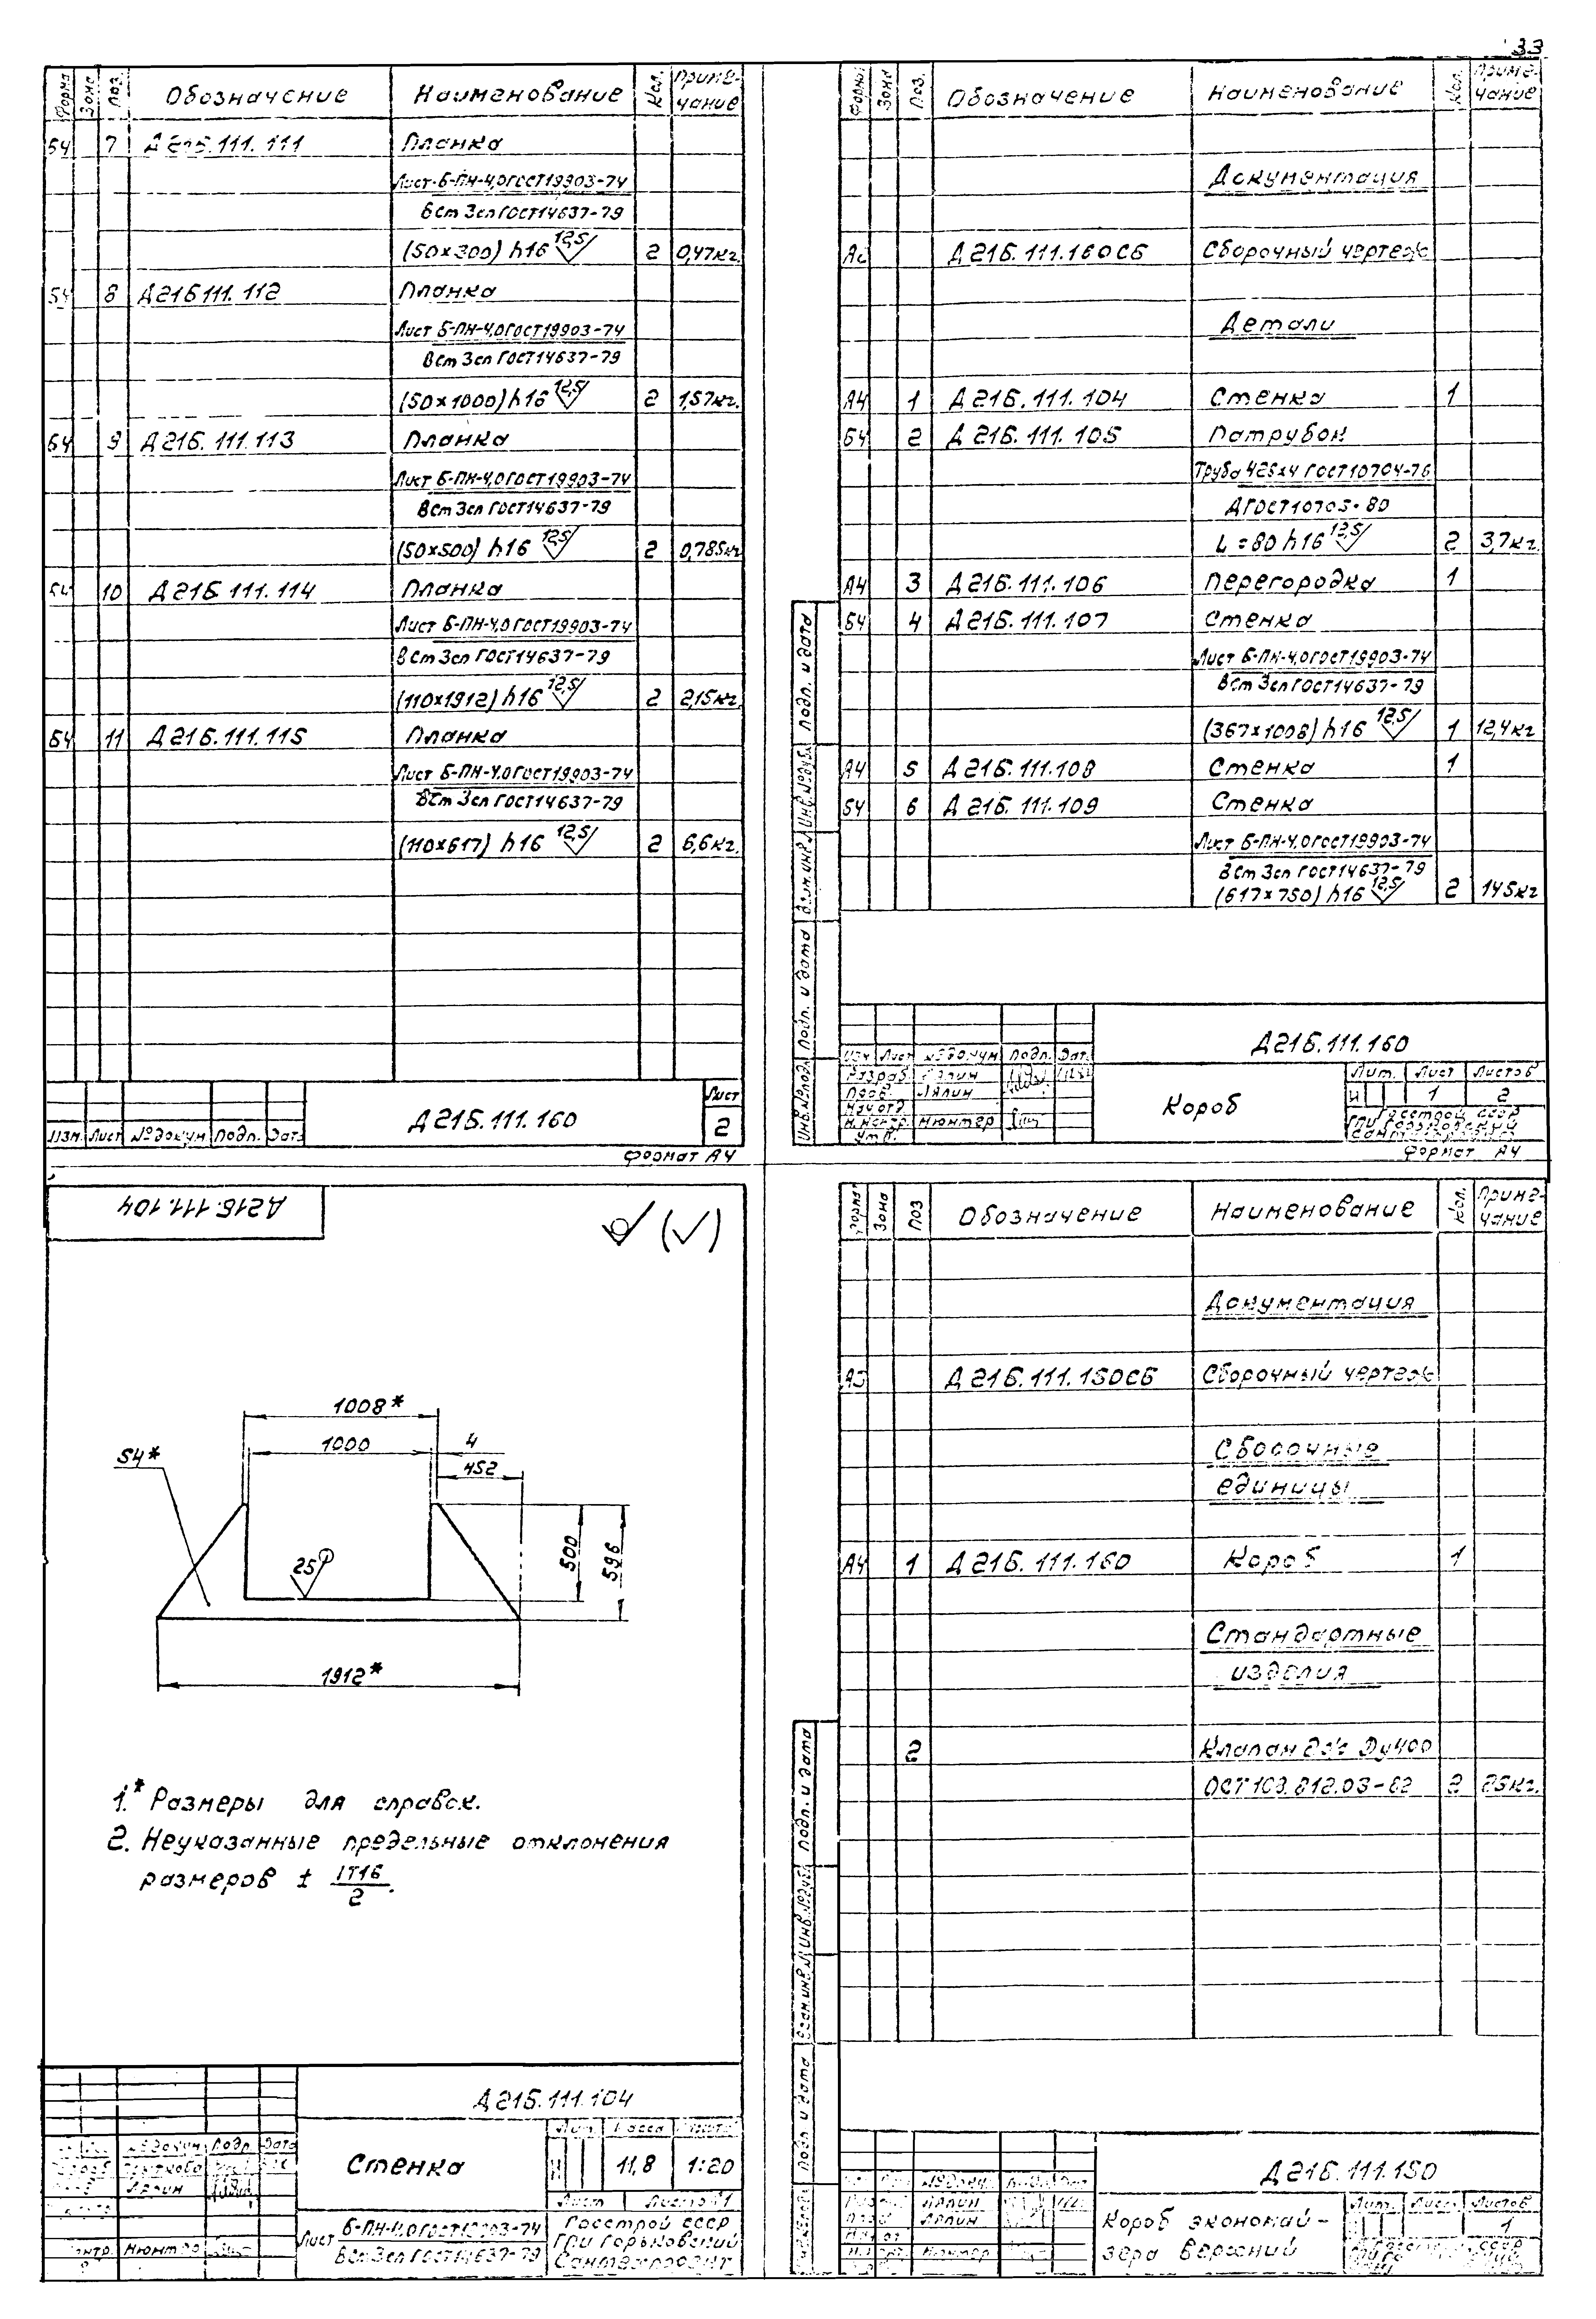 33
Форма Зона Поз. Обозначение Наименование Кол. Приме-
чание
Б4 7 Д21Б.111.111 Планка
Лист Б-ПН-4,0ГОСТ19903-74
ВСт3сп ГОСТ14637-79
(50×300) h16 12,5 2 0,47кг.
Б4 8 Д21Б111.112 Планка
Лист Б-ПН-4,0ГОСТ19903-74
ВСт3сп ГОСТ14637-79
(50×1000) h16 12,5 2 1,57кг.
Б4 9 Д21Б.111.113 Планка
Лист Б-ПН-4,0ГОСТ19903-74
ВСт3сп ГОСТ14637-79
(50×500) h16 12,5 2 0,785кг
Б4 10 Д21Б.111.114 Планка
Лист Б-ПН-4,0ГОСТ19903-74
ВСт3сп ГОСТ14637-79
(110×1912) h16 12,5 2 2,15кг.
Б4 11 Д21Б.111.115 Планка
Лист Б-ПН-4,0ГОСТ19903-74
ВСт3сп ГОСТ14637-79
(110×617) h16 12,5 2 6,6кг.
Изм. Лист №докум. Подп. Дата
Д21Б.111.160
Лист
2
Формат А4
Формат Зона Поз. Обозначение Наименование Кол. Приме-
чание
Документация
А2 Д21Б.111.160СБ Сборочный чертеж
Детали
А4 1 Д21Б.111.104 Стенка 1
Б4 2 Д21Б.111.105 Патрубок
Труба 426×4 ГОСТ10704-76
ДГОСТ10705-80
L=80 h16 12,5 2 3,7кг.
А4 3 Д21Б.111.106 Перегородка 1
Б4 4 Д21Б.111.107 Стенка
Лист Б-ПН-4,0ГОСТ19903-74
ВСт3сп ГОСТ14637-79
(367×1008) h16 12,5 1 12,4кг
А4 5 Д21Б.111.108 Стенка 1
Б4 6 Д21Б.111.109 Стенка
Лист Б-ПН-4,0ГОСТ19903-74
ВСт3сп ГОСТ14637-79
(617×750) h16 12,5 2 145кг
Инв.№подл. Подп. и дата Взам.инв.№ Инв.№дубл. Подп. и дата
Изм Лист №докум Подп. Дат.
Разраб.
Пров. Лялин
Нач.отд.
Н.контр. Нюнтер
Утв.
Д21Б.111.160
Короб
Лит. Лист Листов
И 1 2
Госстрой СССР
ГПИ Горьковский
Сантехпроект
Формат А4
Д21Б.111.104
(√)
1008*
1000 4
452
S4*
25
500
596
1912*
1.* Размеры для справок.
2. Неуказанные предельные отклонения
размеров ± IT16/2.
Д21Б.111.104
№докум Подп. Дата
Лялин
Нюнтер
Стенка
Лит. Масса
11,8 1:20
Лист Листов 1
Лист Б-ПН-4,0ГОСТ19903-74
ВСт3сп ГОСТ14637-79
Госстрой СССР
ГПИ Горьковский
Сантехпроект
Формат Зона Поз Обозначение Наименование Кол. Приме-
чание
Документация
А3 Д21Б.111.150СБ Сборочный чертеж
Сборочные
единицы
А4 1 Д21Б.111.160 Короб 1
Стандартные
изделия
2 Клапан Ду400
ОСТ108.812.03-82 2 25кг.
Подп и дата Взам.инв.№ Инв.№дубл. Подп. и дата
№докум.
Лялин
Лялин
Нюнтер
Д21Б.111.150
Короб экономай-
зера верхний
Лит. Лист Листов
1